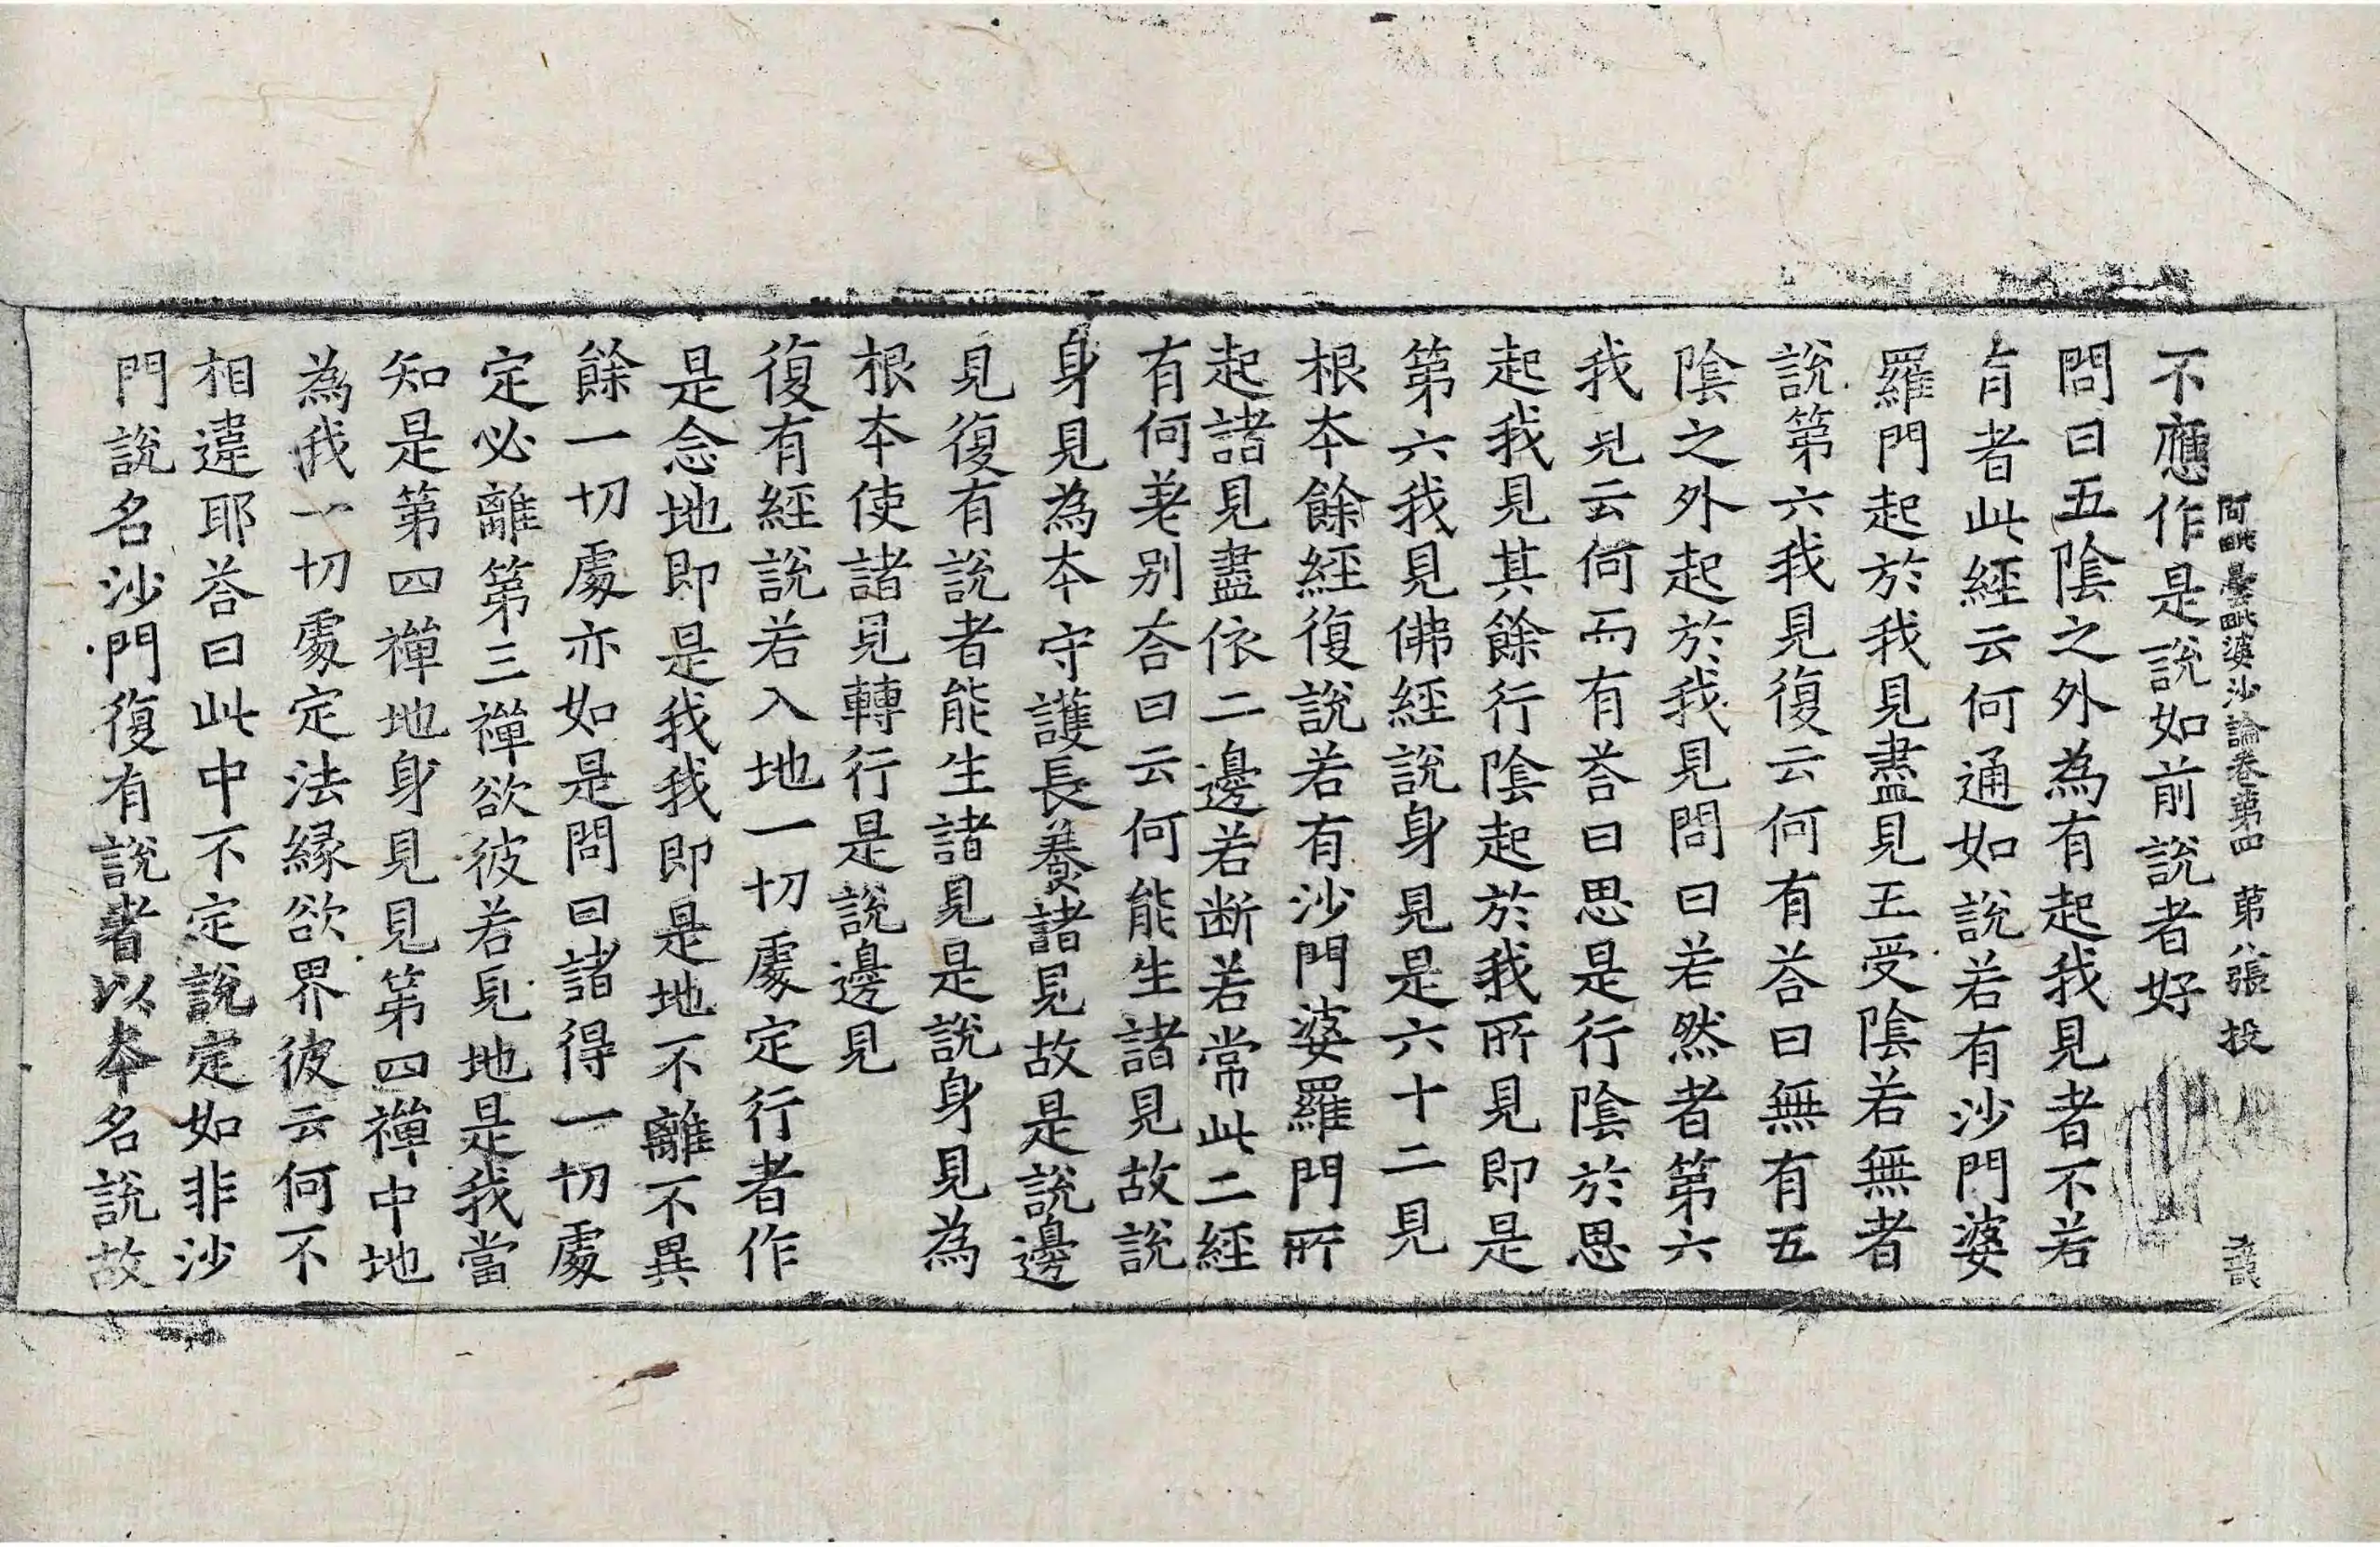 阿毗曇毗婆沙論卷第四　第八張　投
不應作是說如前說者好
問曰五陰之外為有起我見者不若
有者此經云何通如說若有沙門婆
羅門起於我見盡見五受陰若無者
說第六我見復云何有荅曰無有五
陰之外起於我見問曰若然者第六
我見云何而有荅曰思是行陰於思
起我見其餘行陰起於我所見即是
第六我見佛經說身見是六十二見
根本餘經復說若有沙門婆羅門所
起諸見盡依二邊若断若常此二經
有何差别荅曰云何能生諸見故說
身見為本守護長養諸見故是說邊
見復有說者能生諸見是說身見為
根本使諸見轉行是說邊見
復有經說若入地一切處定行者作
是念地即是我我即是地不離不異
餘一切處亦如是問曰諸得一切處
定必離第三禪欲彼若見地是我當
知是第四禪地身見見第四禪中地
為我一切處定法緣欲界彼云何不
相違耶荅曰此中不定說定如非沙
門說名沙門復有說者以本名說故